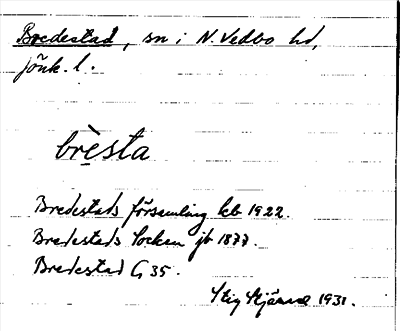 Bredestad, sn i N. Vedbo hd,
jönk. l.
brèsta
Bredestads församling kb 1922.
Bredestads Socken jb 1877.
Bredestad G 35.
Stig 1931.